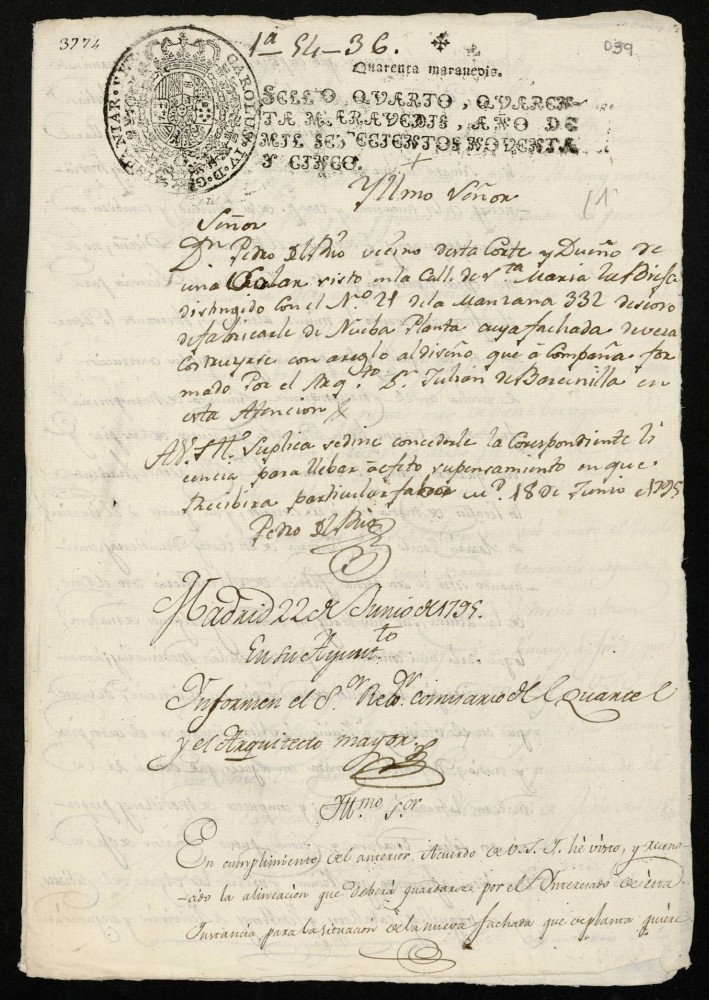 3774
1ª-54-36.
039
Quarenta maravedis.
HISPANIAR · REX CAROLUS · IV · D · G ·
SELLO QVARTO, QVAREN-
TA MARAVEDIS, AÑO DE
MIL SETECIENTOS NOVENTA
Y CINCO.
Yllmo Señor
Señor
Dn. Pedro del Rio vecino desta Corte y Dueño de
una Casa Solar visto en la Calle de Sta. Maria la
distingido Con el No 21 dela Manzana 332 deseoso
defabricarle de Nueba Planta cuya fachada devera
Costruyrse con areglo aldiseño que á Compaña for
mado Por el Arqto. Dn. Julian de Barcenilla en
esta Atencion
AV.S.Y. Suplica sedine concederle la Corespondiente li
cencia para llebar áefeto supensamiento en que
Recibira particular fabor 18 de Junio de 1795
Pedro del Rio
Madrid 22 de Junio de 1795.
En su Ayuntto.
Informen el Sor. Rexor. Comisario del Quartel
y el Arquitecto mayor.
Illmo. Sor.
En cumplimiento del anterior Acuerdo de V.S.I. hè visto, y recono-
-cido la alineacion que deberá guardarse por el Interesado de esta
Instancia para la situacion de la nueva fachada que de planta quiere